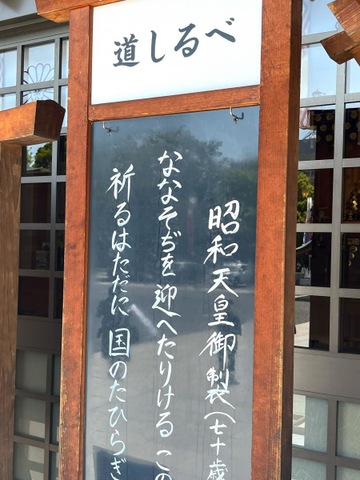 道しるべ
昭和天皇御製（七十歳
ななそぢを迎へたりける この
祈るはただに 国のたひらぎ